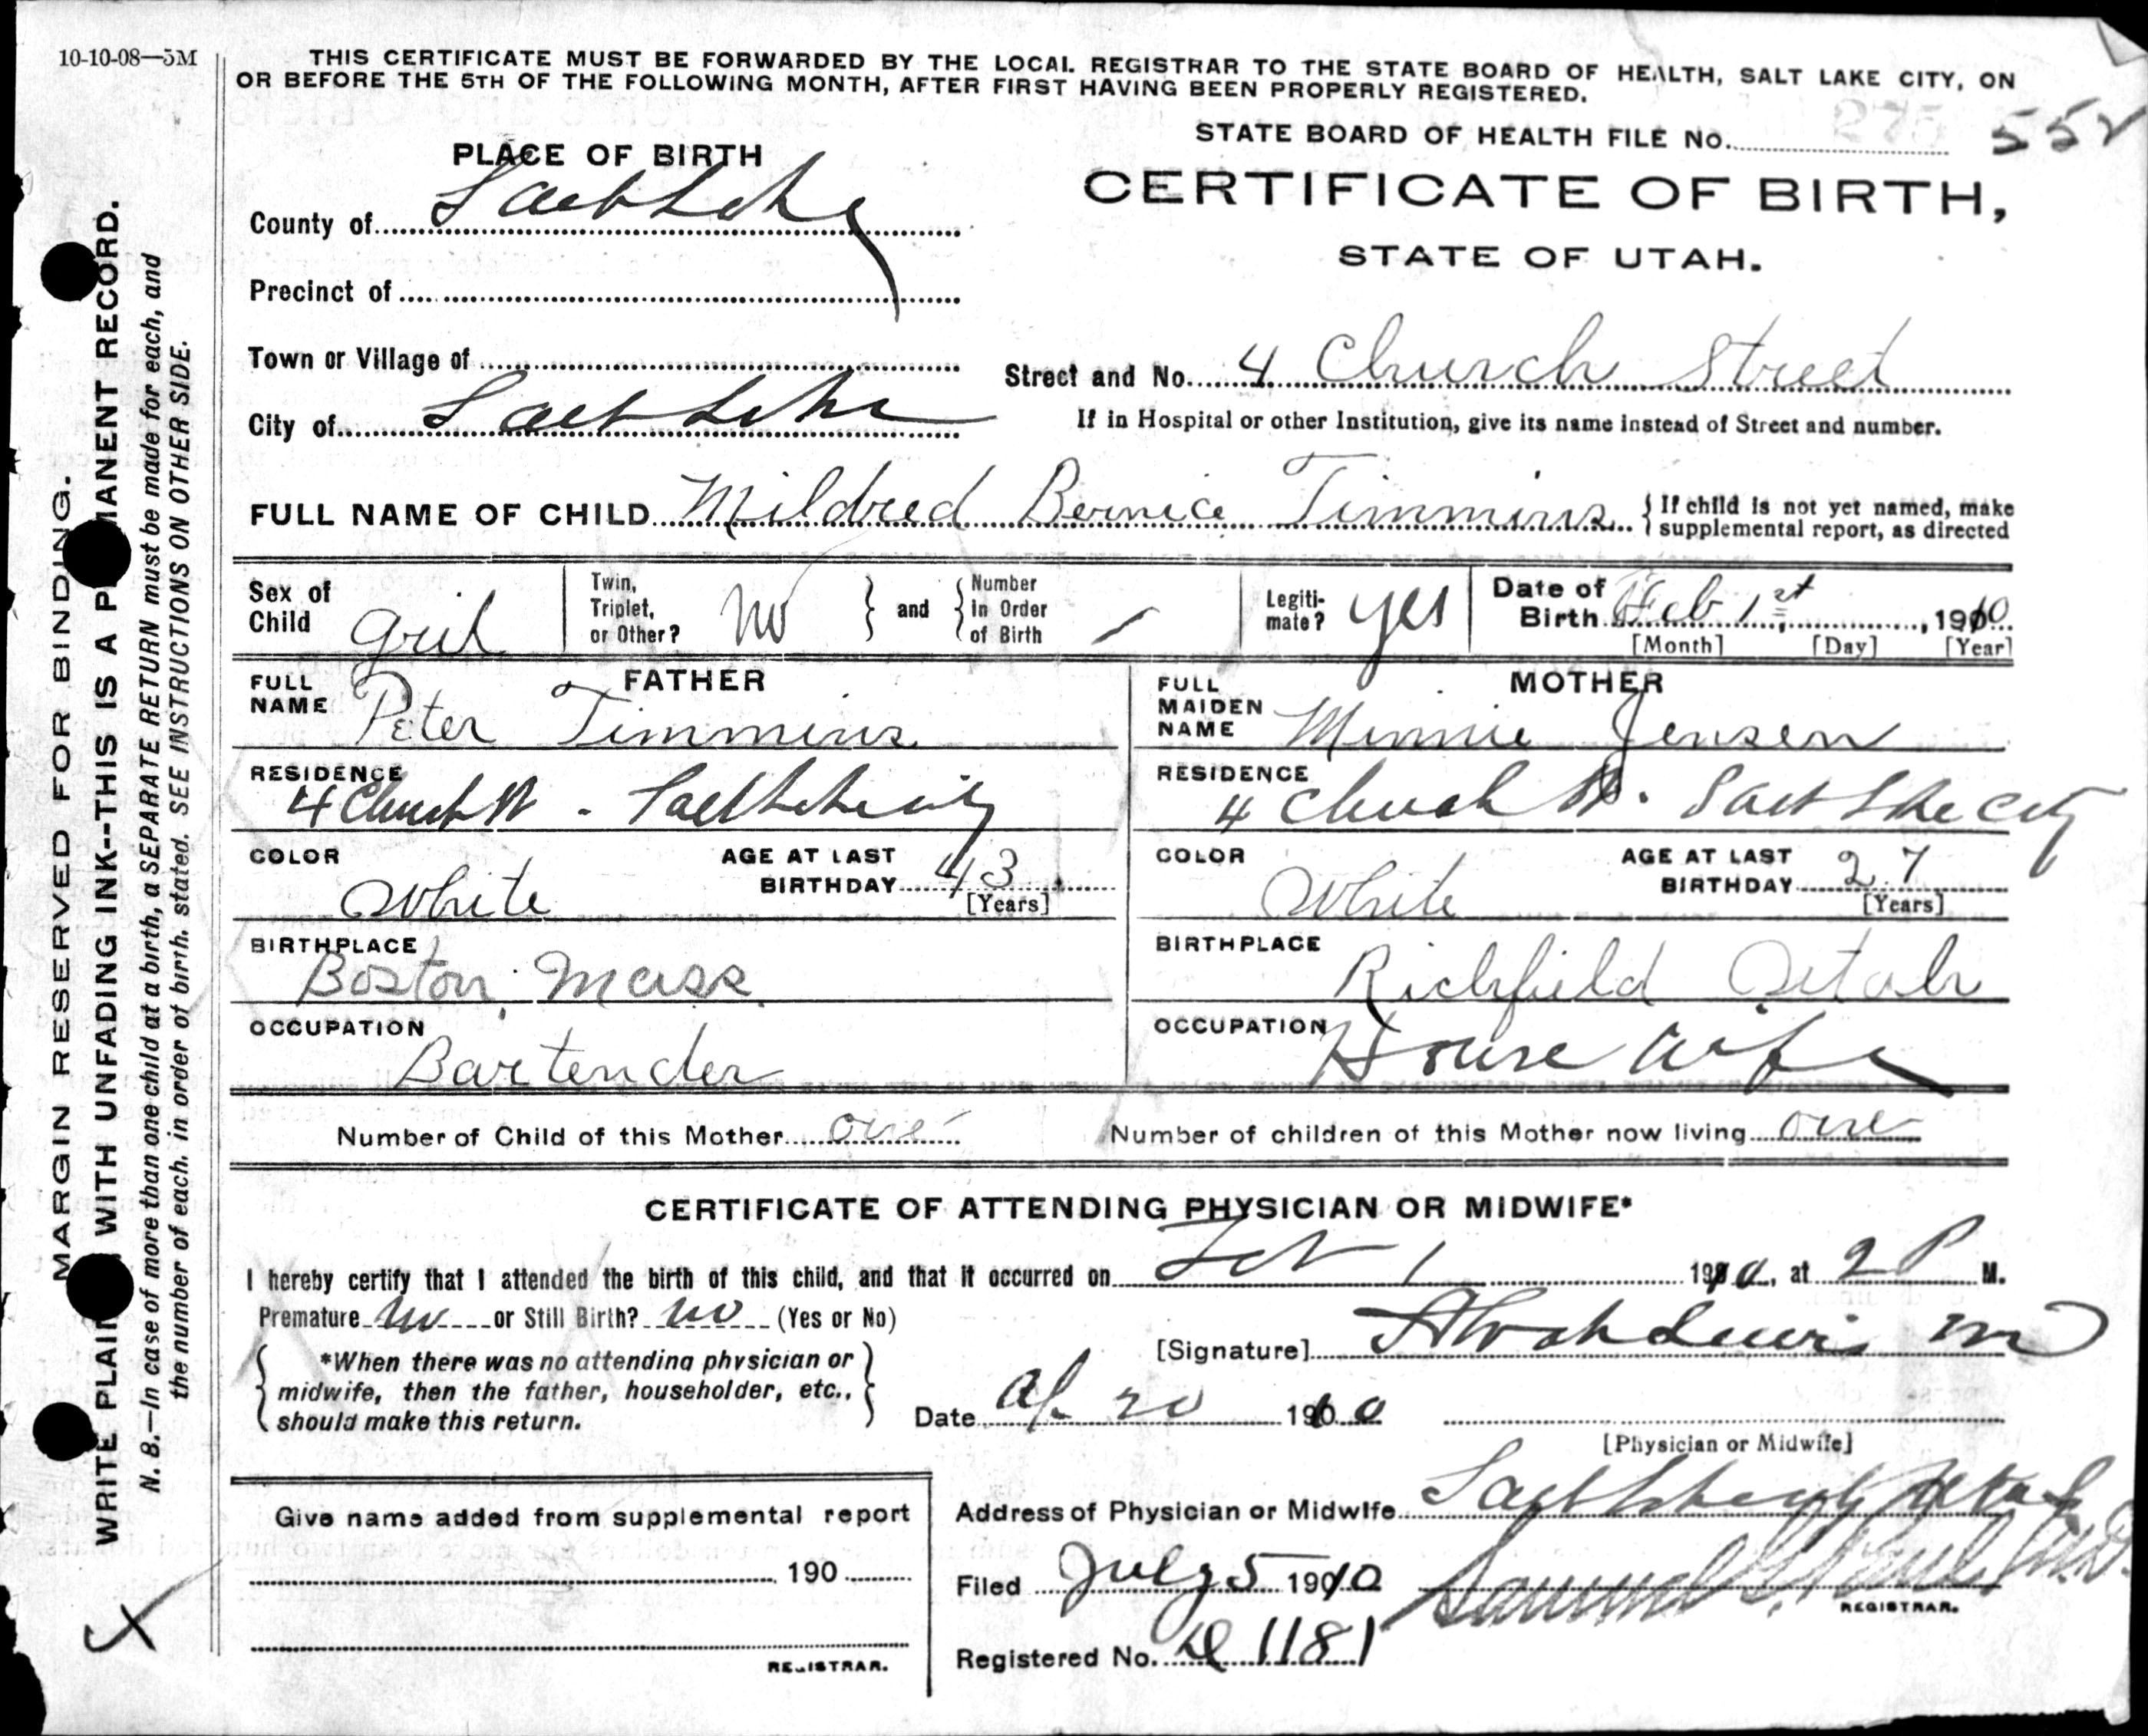 10-10-08—5M
THIS CERTIFICATE MUST BE FORWARDED BY THE LOCAL REGISTRAR TO THE STATE BOARD OF HEALTH, SALT LAKE CITY, ON
OR BEFORE THE 5TH OF THE FOLLOWING MONTH, AFTER FIRST HAVING BEEN PROPERLY REGISTERED.
STATE BOARD OF HEALTH FILE No. 552
PLACE OF BIRTH
CERTIFICATE OF BIRTH,
STATE OF UTAH.
County of Salt Lake
Precinct of
Town or Village of
Street and No. 4 Church Street
City of Salt Lake
If in Hospital or other Institution, give its name instead of Street and number.
FULL NAME OF CHILD Mildred Bernice Timmins { If child is not yet named, make
supplemental report, as directed
Sex of Child gril
Twin, Triplet, or Other? No } and { Number In Order of Birth /
Legitimate? yes
Date of Birth Feb 1st, 1910
[Month] [Day] [Year]
FATHER
FULL NAME Peter Timmins
RESIDENCE 4 Church St - Salt Lake City
COLOR White
AGE AT LAST BIRTHDAY 43 [Years]
BIRTHPLACE Boston, Mass.
OCCUPATION Bartender
MOTHER
FULL MAIDEN NAME Minnie Jensen
RESIDENCE 4 Church St. Salt Lke City
COLOR White
AGE AT LAST BIRTHDAY 27 [Years]
BIRTHPLACE Richfield Utah
OCCUPATION House wife
Number of Child of this Mother one
Number of children of this Mother now living one
CERTIFICATE OF ATTENDING PHYSICIAN OR MIDWIFE*
I hereby certify that I attended the birth of this child, and that it occurred on Feb 1 1910, at 2 P M.
Premature no or Still Birth? no (Yes or No)
[Signature]
{ *When there was no attending physician or
midwife, then the father, householder, etc.,
should make this return. }
Date Ap 20 1910
[Physician or Midwife]
Give name added from supplemental report
190
REGISTRAR.
Address of Physician or Midwife Salt Lake City Utah
Filed July 5 1910 Samuel G. Paul M.D.
REGISTRAR.
Registered No. D 1181
MARGIN RESERVED FOR BINDING.
WRITE PLAIN WITH UNFADING INK--THIS IS A P MANENT RECORD.
N. B.—In case of more than one child at a birth, a SEPARATE RETURN must be made for each, and
the number of each, in order of birth, stated. SEE INSTRUCTIONS ON OTHER SIDE.
X